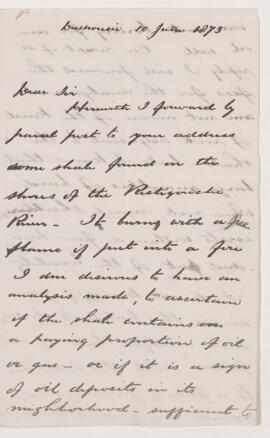 Dalhousie, 10 June 1873
Dear Sir
Herewith I forward by
parcel post to your address
some shale found on the
shores of the Restigouche
River - It burns with a free
flame if put into a fire
I am desirous to have an
analysis made, to ascertain
if the shale contains
a paying proportion of oil
or gas - or if it is a sign
of oil deposits in its
neighborhood - sufficient to